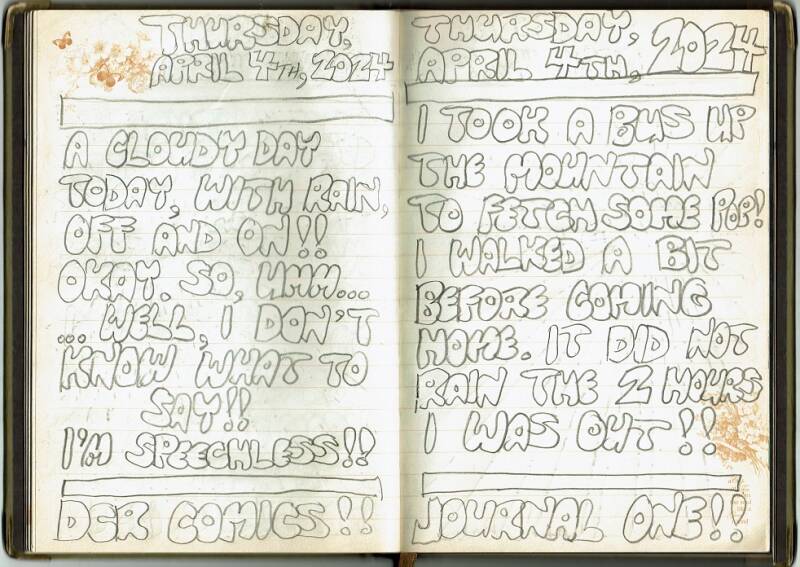 THURSDAY,
APRIL 4TH, 2024
A CLOUDY DAY
TODAY, WITH RAIN,
OFF AND ON!!
OKAY. SO, UMM...
... WELL, I DON'T
KNOW WHAT TO
SAY!!
I'M SPEECHLESS!!
DER COMICS!!
THURSDAY,
APRIL 4TH, 2024
I TOOK A BUS UP
THE MOUNTAIN
TO FETCH SOME POP!
I WALKED A BIT
BEFORE COMING
HOME. IT DID NOT
RAIN THE 2 HOURS
I WAS OUT!!
JOURNAL ONE!!